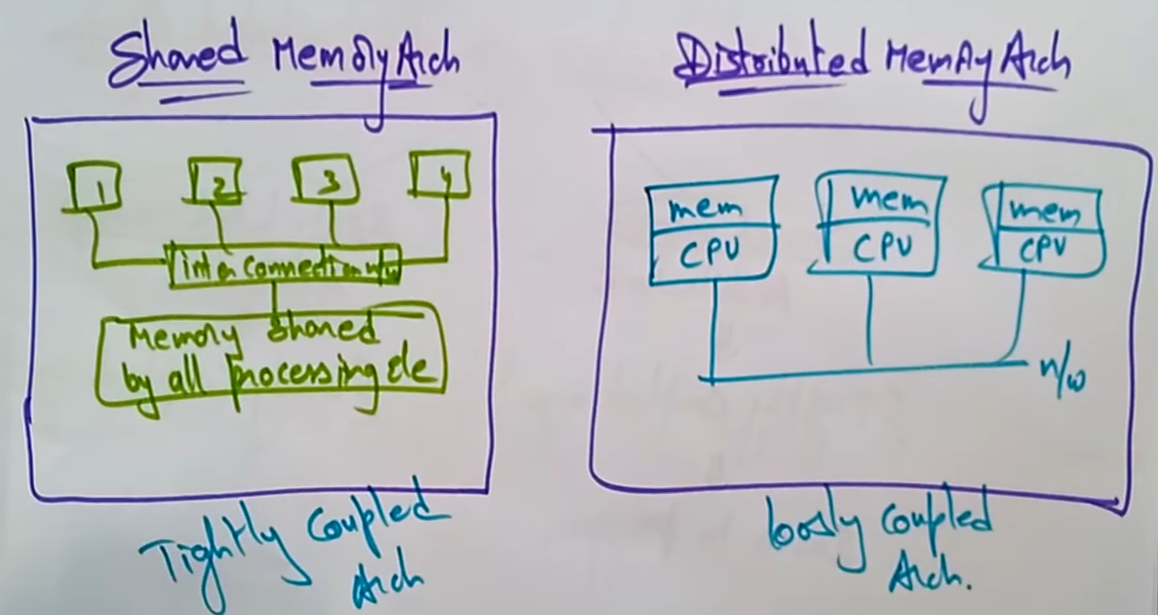 Shared Memory Arch
1 2 3 4
inter connection n/w
Memory Shared
by all processing ele
Tightly Coupled
Arch
Distributed Memory Arch
mem mem mem
CPU CPU CPU
n/w
loosly Coupled
Arch.